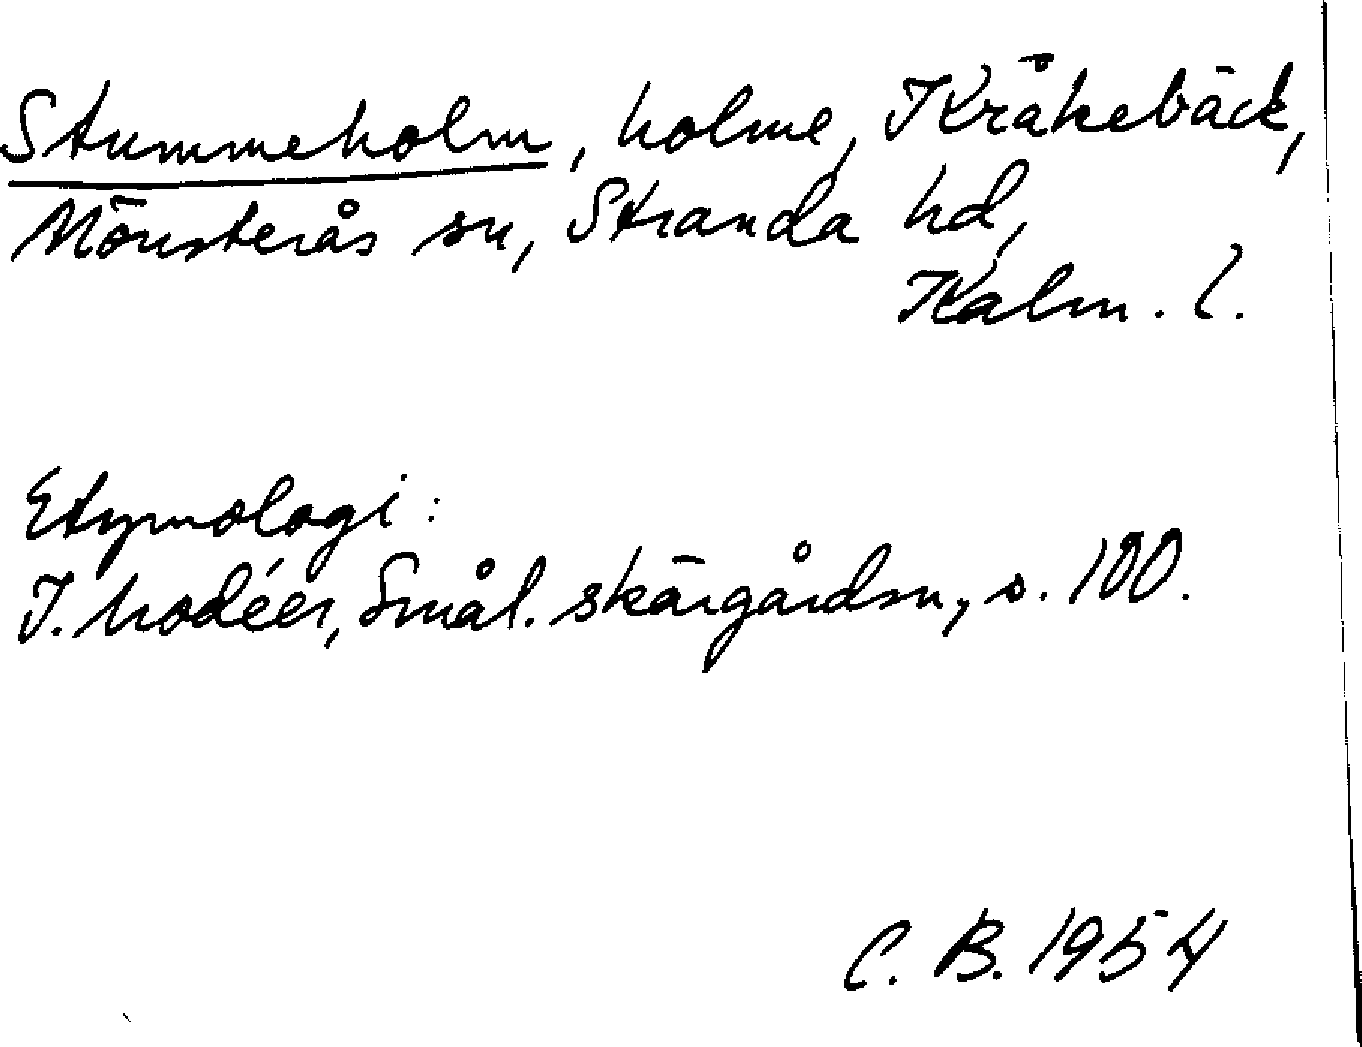 Stummeholm, holme, Kråkebäck,
Mönsterås sn, Stranda hd,
Kalm. l.
Etymologi:
I. Modéer, Smål. skärgårdsn, s. 100.
C. B. 1954